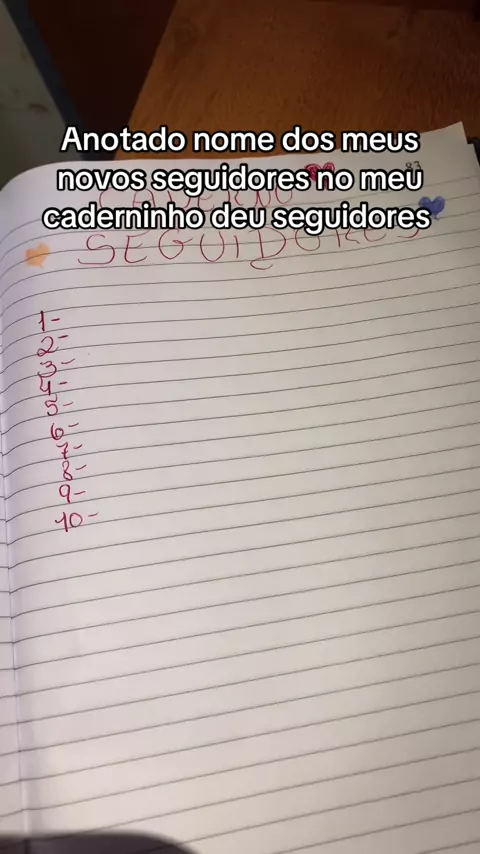 Anotado nome dos meus
novos seguidores no meu
caderninho deu seguidores
83
CADERNO
SEGUIDORES
1-
2-
3-
4-
5-
6-
7-
8-
9-
10-